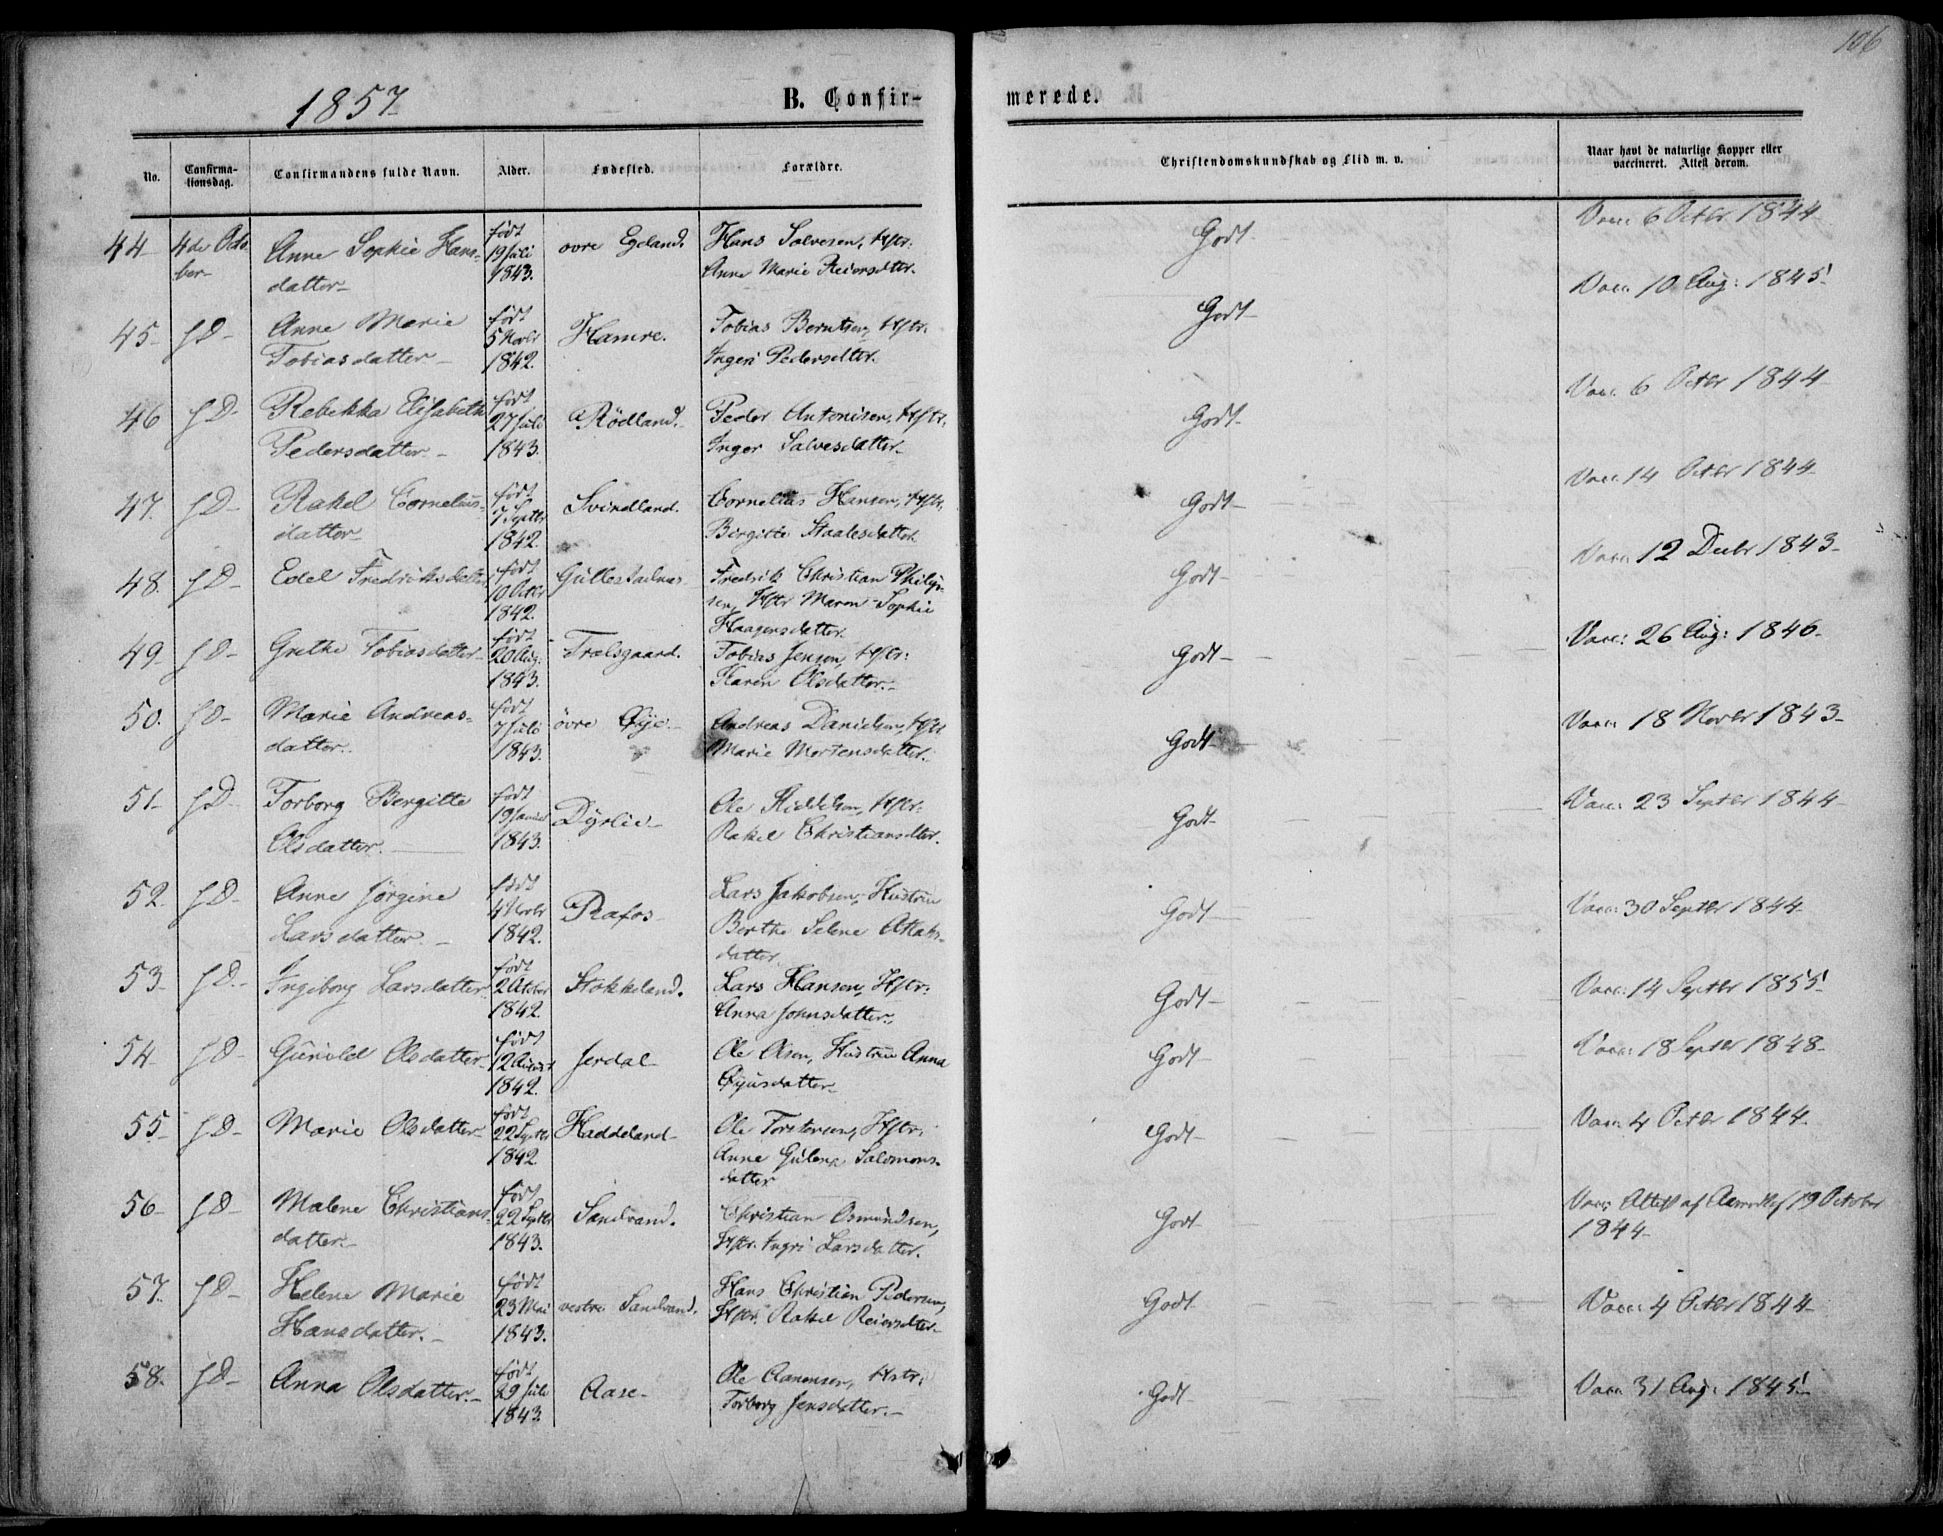 106
1857
B. Confir-
merede.
No.
Confirma-
tionsdag.
Confirmandens fulde Navn.
Alder.
Fødested.
Forældre.
Christendomskundskab og Flid m. v.
Naar havt de naturlige Kopper eller
vaccineret. Attest derom.
44 4de Octo
ber
Anne Sophie Hans-
datter
født
19 Juli
1843.
øvre Egeland.
Hans Salvesen, Hstr:
Anne Marie Reiersdtter.
Godt
Vacc: 6 Octbr 1844
45 f D
Anne Marie
Tobiasdatter
født
5 Novbr
1842.
Hamre.
Tobias Berntsen, Hstr:
Inger Pedersdtter.
Godt
Vacc: 10 Aug: 1845
46 f D
Rebekka Elisabeth
Pedersdatter
født
27 Juli
1843.
Rødland.
Peder Antonisen, Hstr,
Inger Salvesdatter
Godt
Vacc: 6 Octbr 1844
47. f D
Rakel Cornelius-
datter
født
7 Septbr
1842.
Svindland.
Cornelius Hansen, Hstr,
Birgitte Staalesdatter
Godt
Vacc: 14 Octbr 1844
48. f D
Edel Fredriksdatter
født
10 Octbr
1842.
Gullestadnæs
Fredrik Christian Philip-
sen, Hstr Maren Sophie
Haagensdatter.
Godt
Vacc: 12 Decbr 1843
49 f D
Grethe Tobiasdatter
født
20 Aug.
1843.
Frælsgaard.
Tobias Jensen, Hstr:
Karen Olsdatter.
Godt
Vacc: 26 Aug: 1846
50. f D
Marie Andreas-
datter.
født
7 Juli
1843.
øvre Øye
Andreas Danielsen, Hstr
Marie Mortensdatter.
Godt
Vacc: 18 Novbr 1843
51 f D
Torborg Bergitte
Olsdatter.
født
19
1843.
Dyrlie
Ole Kiddelsen, Hstr:
Rakel Christiansdtter.
Godt
Vacc: 23 Septbr 1844
52 f D
Anne Jørgine
Larsdatter
født
4 Novbr
1842.
Rafos
Lars Jakobsen, Hustru
Berthe Selene Atlaks-
datter.
Godt
Vacc: 30 Septbr 1844
53 f D.
Ingeborg Larsdatter
født
2 October
1842.
Stokkeland.
Lars Hansen, Hstr:
Anna Johnsdatter.
Godt
Vacc: 14 Septbr 1855
54 f D
Gunild Olsdatter
født
12 August
1842.
Jerdal
Ole Olsen, Hustru Anna
Gyusdatter
Godt
Vacc: 18 Septbr 1848
55 f D
Marie Olsdatter
født
22 Septbr
1842
Haddeland
Ole Torstensen, Hstr:
Anne Gulena Salomons-
datter
Godt
Vacc: 4 Octbr 1844
56 f D
Malene Christians-
datter
født
22 Septbr
1843.
Sandvand.
Christian Osmundsen,
Hstr. Ingri Larsdatter.
Godt
Vacc: Attest af 19 October
1844
57. f D
Helene Marie
Hansdatter.
født
23 Mai
1843.
vestre Sandvand.
Hans Christian Pedersen,
Hstr. Rakel Reiersdtter
Godt
Vacc: 4 Octbr 1844
58. f D
Anna Olsdatter.
født
29 Juli
1843
Aase
Ole Aanensen, Hstr:
Torborg Jensdatter.
Godt
Vacc: 31 Aug: 1845